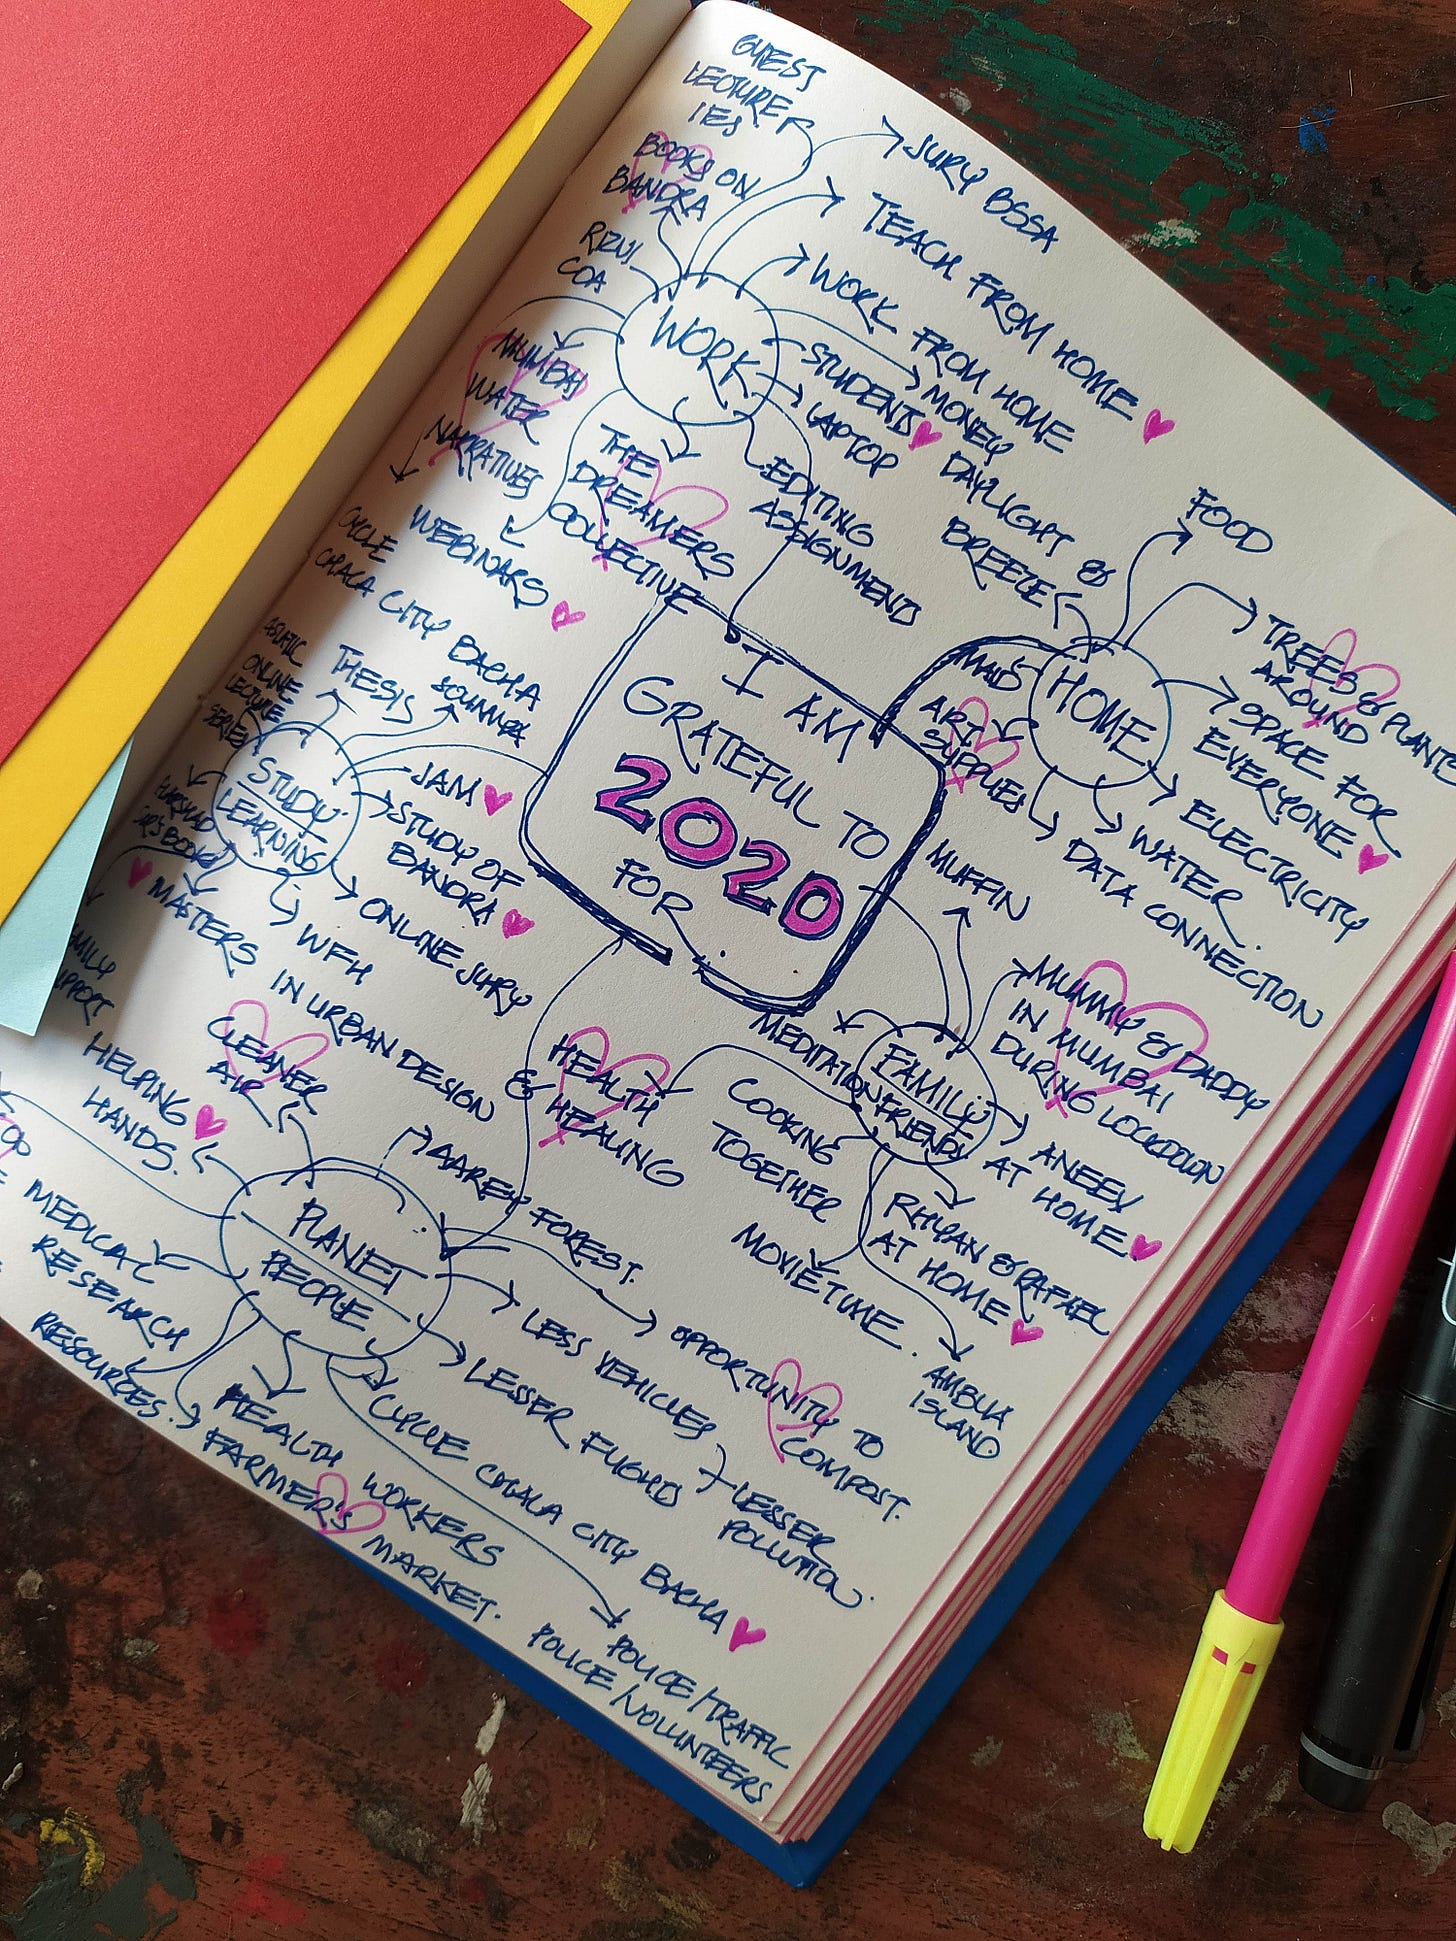 GUEST
LECTURE
IES
JURY BSSA
BOOKS ON
BANDRA
TEACH FROM HOME
RIZVI
COA
WORK FROM HOME
WORK
STUDENTS
MONEY
LAPTOP
MUMBAI
WATER
NARRATIVES
THE
DREAMERS
COLLECTIVE
EDITING
ASSIGNMENT
WEBINARS
CYCLE
CHALA CITY BACHA
I AM
GRATEFUL TO
2020
FOR...
DAYLIGHT &
BREEZE
FOOD
TREES & PLANTS
AROUND
HOME
MAUS
ART
SUPPLIES
SPACE FOR
EVERYONE
ELECTRICITY
WATER.
DATA CONNECTION
ASIATIC
ONLINE
LECTURE
SERIES
THESIS
STUDY
LEARNING
JAM
STUDY OF
BANDRA
ONLINE JURY
WFH
MASTERS
IN URBAN DESIGN
MUFFIN
MUMMY & DADDY
IN MUMBAI
DURING LOCKDOWN
MEDITATION
FAMILY
FRIENDS
ANEEV
AT HOME
RHYAN & RAFAEL
AT HOME
COOKING
TOGETHER
MOVIE TIME.
AMBUA
ISLAND
HEALTH
& HEALING
CLEANER
AIR
HELPING
HANDS.
PLANET
PEOPLE
AAREY FOREST.
MEDICAL
RESEARCH
RESOURCES.
LESS VEHICLES
LESSER
POLLUTION.
OPPORTUNITY TO
COMPOST.
HEALTH WORKERS
FARMER'S MARKET.
CYCLE CHALA CITY BACHA
POLICE/TRAFFIC
POLICE/VOLUNTEERS